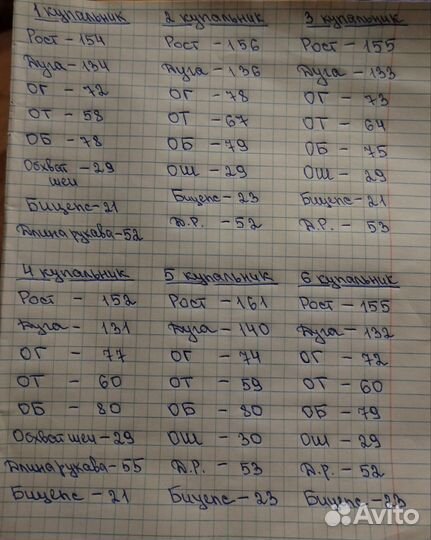 1 купальник
Рост - 154
Дуга - 134
ОГ - 72
ОТ - 58
ОБ - 78
Обхват - 29
шеи
Бицепс - 21
Длина рукава - 52
2 купальник
Рост - 156
Дуга - 136
ОГ - 78
ОТ - 67
ОБ - 79
ОШ - 29
Бицепс - 23
Д.Р. - 52
3 купальник
Рост - 155
Дуга - 133
ОГ - 73
ОТ - 64
ОБ - 75
ОШ - 29
Бицепс - 21
Д.Р. - 53
4 купальник
Рост - 152
Дуга - 131
ОГ - 77
ОТ - 60
ОБ - 80
Обхват шеи - 29
Длина рукава - 55
Бицепс - 21
5 купальник
Рост - 161
Дуга - 140
ОГ - 74
ОТ - 59
ОБ - 80
ОШ - 30
Д.Р. - 53
Бицепс - 23
6 купальник
Рост - 155
Дуга - 132
ОГ - 72
ОТ - 60
ОБ - 79
ОШ - 29
Д.Р. - 52
Бицепс - 23
Avito